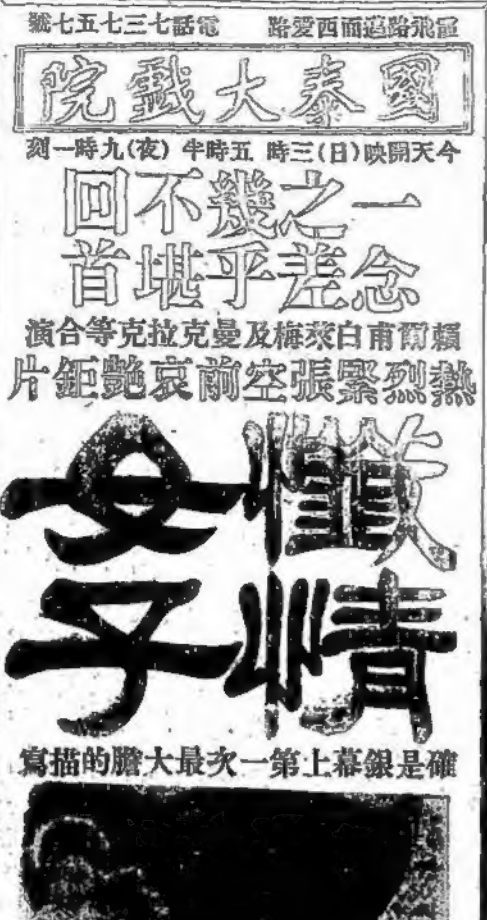 霞飛路邁而西愛路 電話七三七五七號
國泰大戲院
今天開映(日)三時 五時半 (夜)九時一刻
一念
之差
幾乎
不堪
回首
賴爾甫白萊梅及曼克拉克等合演
熱烈緊張空前哀艷鉅片
懺情
女子
確是銀幕上第一次最大膽的描寫